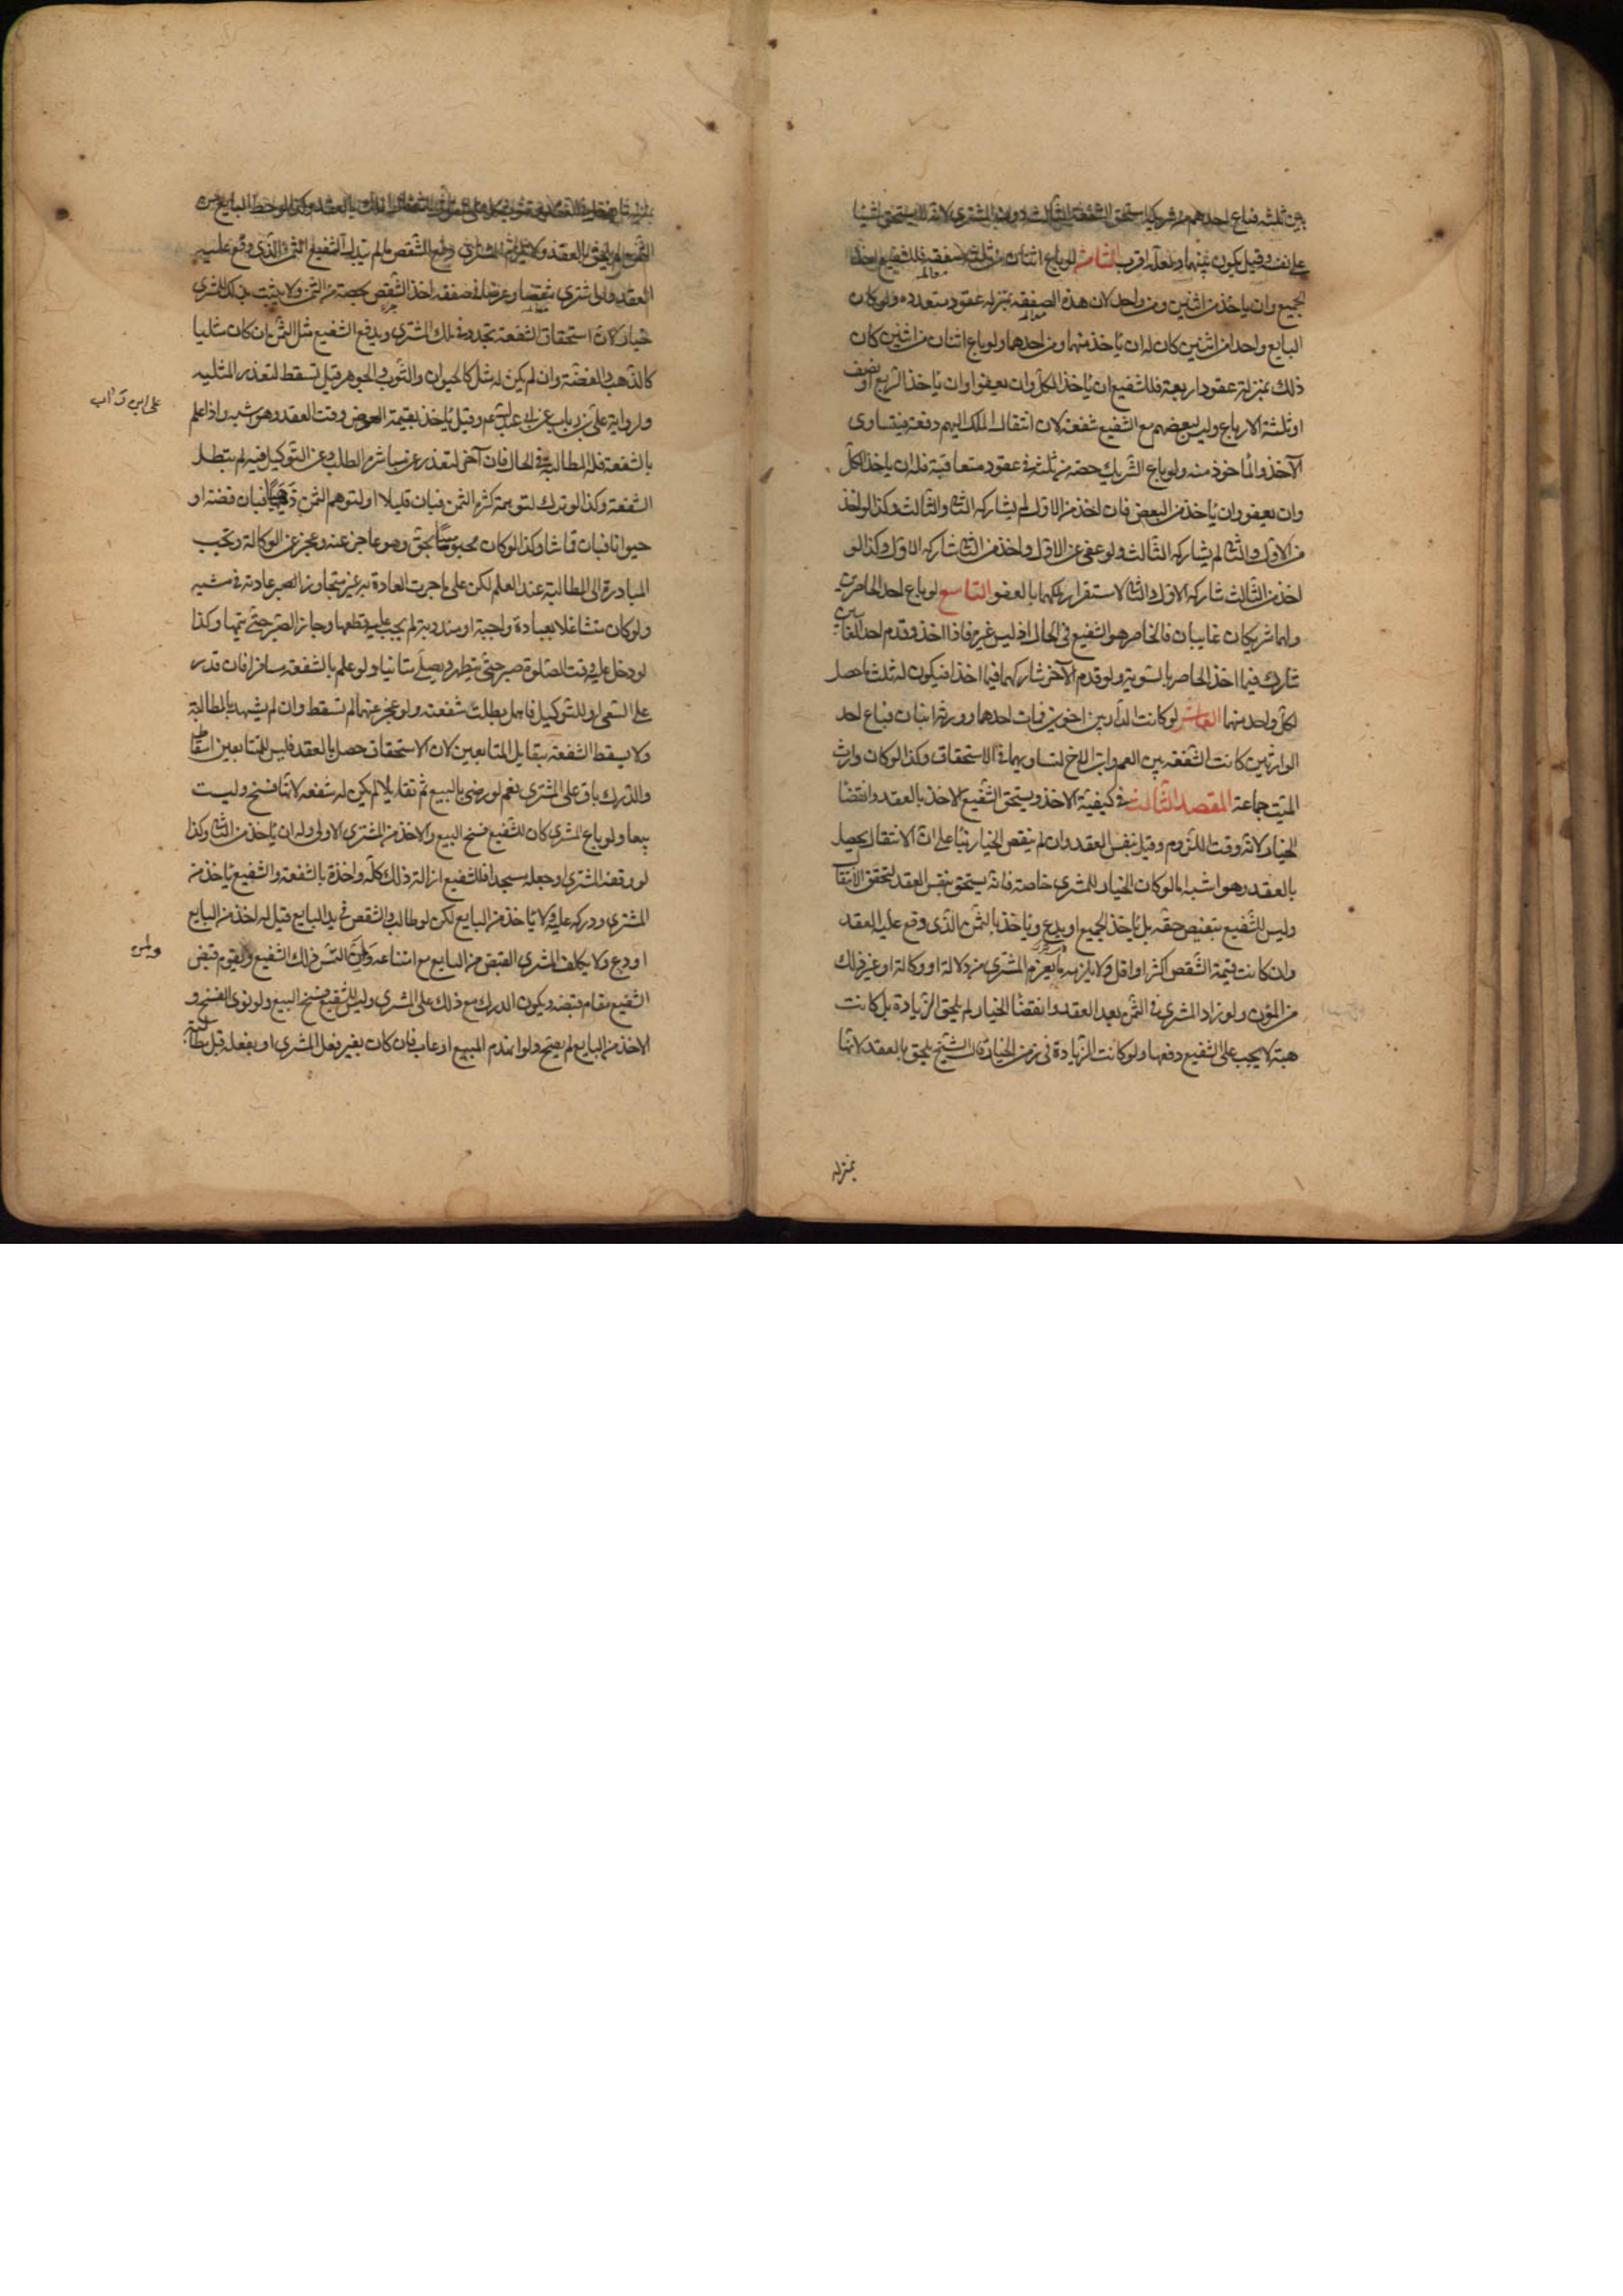 بين ثلثة فباع احدهم من شريكه استحق الشفعة الثالث دون المشتري لانه لا يستحق شيئا
على نفسه وقيل يكون بينهما ولعله اقرب الثامن لو باع اثنان من ثلثة صفقة فللشفيع اخذ
الجميع وان ياخذ من اثنين ومن واحد لان هذه الصفقة بمنزلة عقود متعدده ولو كان
البايع واحدا من اثنين كان له ان ياخذ منهما ومن احدهما ولو باع اثنان من اثنين كان
ذلك بمنزلة عقود اربعة فللشفيع ان ياخذ الكل وان يعفو وان ياخذ الربع او نصف
او ثلثة الارباع وليس لبعضهم مع الشفيع شفعة لان انتقال الملك اليهم دفعة فيتساوى
الآخذ والماخوذ منه ولو باع الشريك حصته من ثلثة في عقود متعاقبة فله ان ياخذ الكل
وان يعفو وان ياخذ من البعض فان اخذ من الاول لم يشاركه الثاني والثالث وكذا لو اخذ
من الاول والثاني لم يشاركه الثالث ولو عفى عن الاول واخذ من الثاني شاركه الاول وكذا لو
اخذ من الثالث شاركه الاول والثاني لاستقرار ملكهما بالعفو التاسع لو باع احد الحاضرين
ولهما شريكان غايبان فالحاضر هو الشفيع في الحال اذ ليس غيره فاذا اخذ وقدم احد الغايبين
شارك فيما اخذ الحاضر بالسوية ولو قدم الآخر شاركهما فيما اخذا فيكون له ثلث ما حصل
لكل واحد منهما العاشر لو كانت الدار بين اخوين فمات احدهما وورثه ابنان فباع احد
الوارثين كانت الشفعة بين العم وابن الاخ لتساويهما في الاستحقاق وكذا لو كان وارث
الميت جماعة المقصد الثالث في كيفية الاخذ ويستحق الشفيع الاخذ بالعقد وانقضا
الخيار لانه وقت اللزوم وقيل بنفس العقد وان لم ينقض الخيار بناء على ان الانتقال يحصل
بالعقد وهو اشبه اما لو كان الخيار للمشتري خاصة فانه يستحق بنفس العقد لتحقق الانتقال
وليس للشفيع تبعيض حقه بل ياخذ الجميع او يدع وياخذ بالثمن الذي وقع عليه العقد
وان كانت قيمة الشقص اكثر او اقل ولا يلزمه ما يغرم المشتري من دلالة او وكالة او غير ذلك
من المؤن ولو زاد المشتري في الثمن بعد العقد وانقضا الخيار لم يلحق الزيادة بل كانت
هبة لا يجب على الشفيع دفعها ولو كانت الزيادة في زمن الخيار قال الشيخ يلحق بالعقد لانها
بمنزله
العقد ولو اشترى شقصا وعرضا في صفقة اخذ الشقص بحصته من الثمن ولا يثبت بذلك للمشتري
خيار لان استحقاق الشفعة تجدد في ملك المشتري ويدفع الشفيع مثل الثمن ان كان مثليا
كالذهب والفضة وان لم يكن له مثل كالحيوان والثوب والجوهر قيل تسقط لتعذر المثليه
ولرواية علي بن رياب عن ابي عبد الله عم وقيل ياخذ بقيمة العوض وقت العقد وهو اشبه واذا علم
على ابن رئاب
بالشفعة فله المطالبة في الحال فان آخر لتعذر عن مباشرة الطلب وعن التوكيل فيه لم تبطل
الشفعة وكذا لو ترك لتوهمه كثرة الثمن فبان قليلا او لتوهم الثمن ذهبا فبان فضة او
حيوانا فبان قماشا وكذا لو كان محبوسا بحق وهو عاجز عنه وعجز عن الوكالة وتجب
المبادرة الى المطالبة عند العلم لكن على ما جرت العادة به غير متجاوز عادته في مشيه
ولو كان متشاغلا بعبادة واجبة او مندوبة لم يجب عليه قطعها وجاز الصبر حتى يتمها وكذا
لو دخل عليه وقت الصلوة صبر حتى يتطهر ويصلي متانيا ولو علم بالشفعة مسافرا فان قدر
على السعي او التوكيل فاهمل بطلت شفعته ولو عجز عنهما لم تسقط وان لم يشهد بالمطالبة
ولا يسقط الشفعة بتقايل المتبايعين لان الاستحقاق حصل بالعقد فليس للمتبايعين اسقاطه
والدرك باق على المشتري نعم لو رضي بالبيع ثم تقايلا لم يكن له شفعة لانها فسخ وليست
بيعا ولو باع المشتري كان للشفيع فسخ البيع والاخذ من المشتري الاول وله ان ياخذ من الثاني وكذا
لو وقفه المشتري او جعله مسجدا فللشفيع ازالة ذلك كله واخذه بالشفعة والشفيع ياخذ من
المشتري ودركه عليه ولا ياخذ من البايع لكن لو طالب والشقص في يد البايع قيل له اخذ من البايع
او دع ولا يكلف المشتري القبض من البايع مع امتناعه وان التمس ذلك الشفيع ويقوم قبض
الشفيع مقام قبضه ويكون الدرك مع ذلك على المشتري وليس للشفيع فسخ البيع ولو نوى الفسخ و
الاخذ من البايع لم يصح ولو انهدم المبيع او عاب فان كان بغير فعل المشتري او بفعله قبل مطالبة